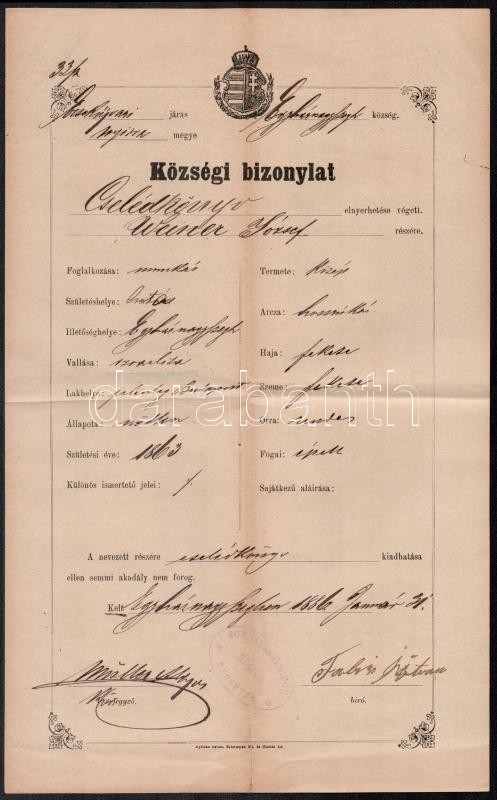 járás
megye
község.
Községi bizonylat
Cselédkönyv elnyerhetése végett.
Weiszer József részére.
Foglalkozása: munkás
Születéshelye:
Illetőséghelye: Egyháznagyszegh
Vallása: izraelita
Lakhelye: jelenleg Budapest
Állapota: nőtlen
Születési éve: 1863
Különös ismertető jelei: /.
Termete: közép
Arcza: hosszúkás
Haja: fekete
Szeme: fekete
Orra: rendes
Fogai: épek
Sajátkezű aláírása:
A nevezett részére cselédkönyv kiadhatása
ellen semmi akadály nem forog.
Kelt 1886 Január 31.
Müller
körjegyző.
István
biró.
darabanth